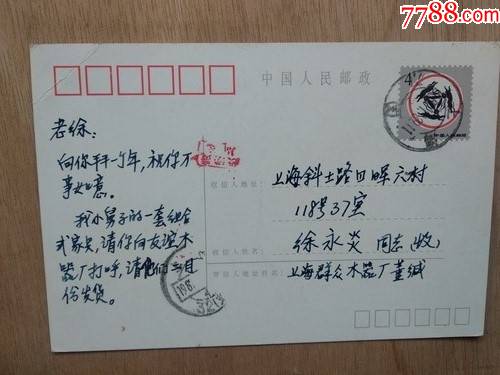 7788.com
中国人民邮政
老徐:
向你拜个年,祝你万
事如意。
我小舅子的一套组合
式家具,请你向友谊木
器厂打呼,请他们三月
份发货。
收信人地址:
上海斜土路日晖六村
118号37室
收信人姓名:
徐永炎 同志(收)
寄信人地址姓名:
上海群众木器厂董缄